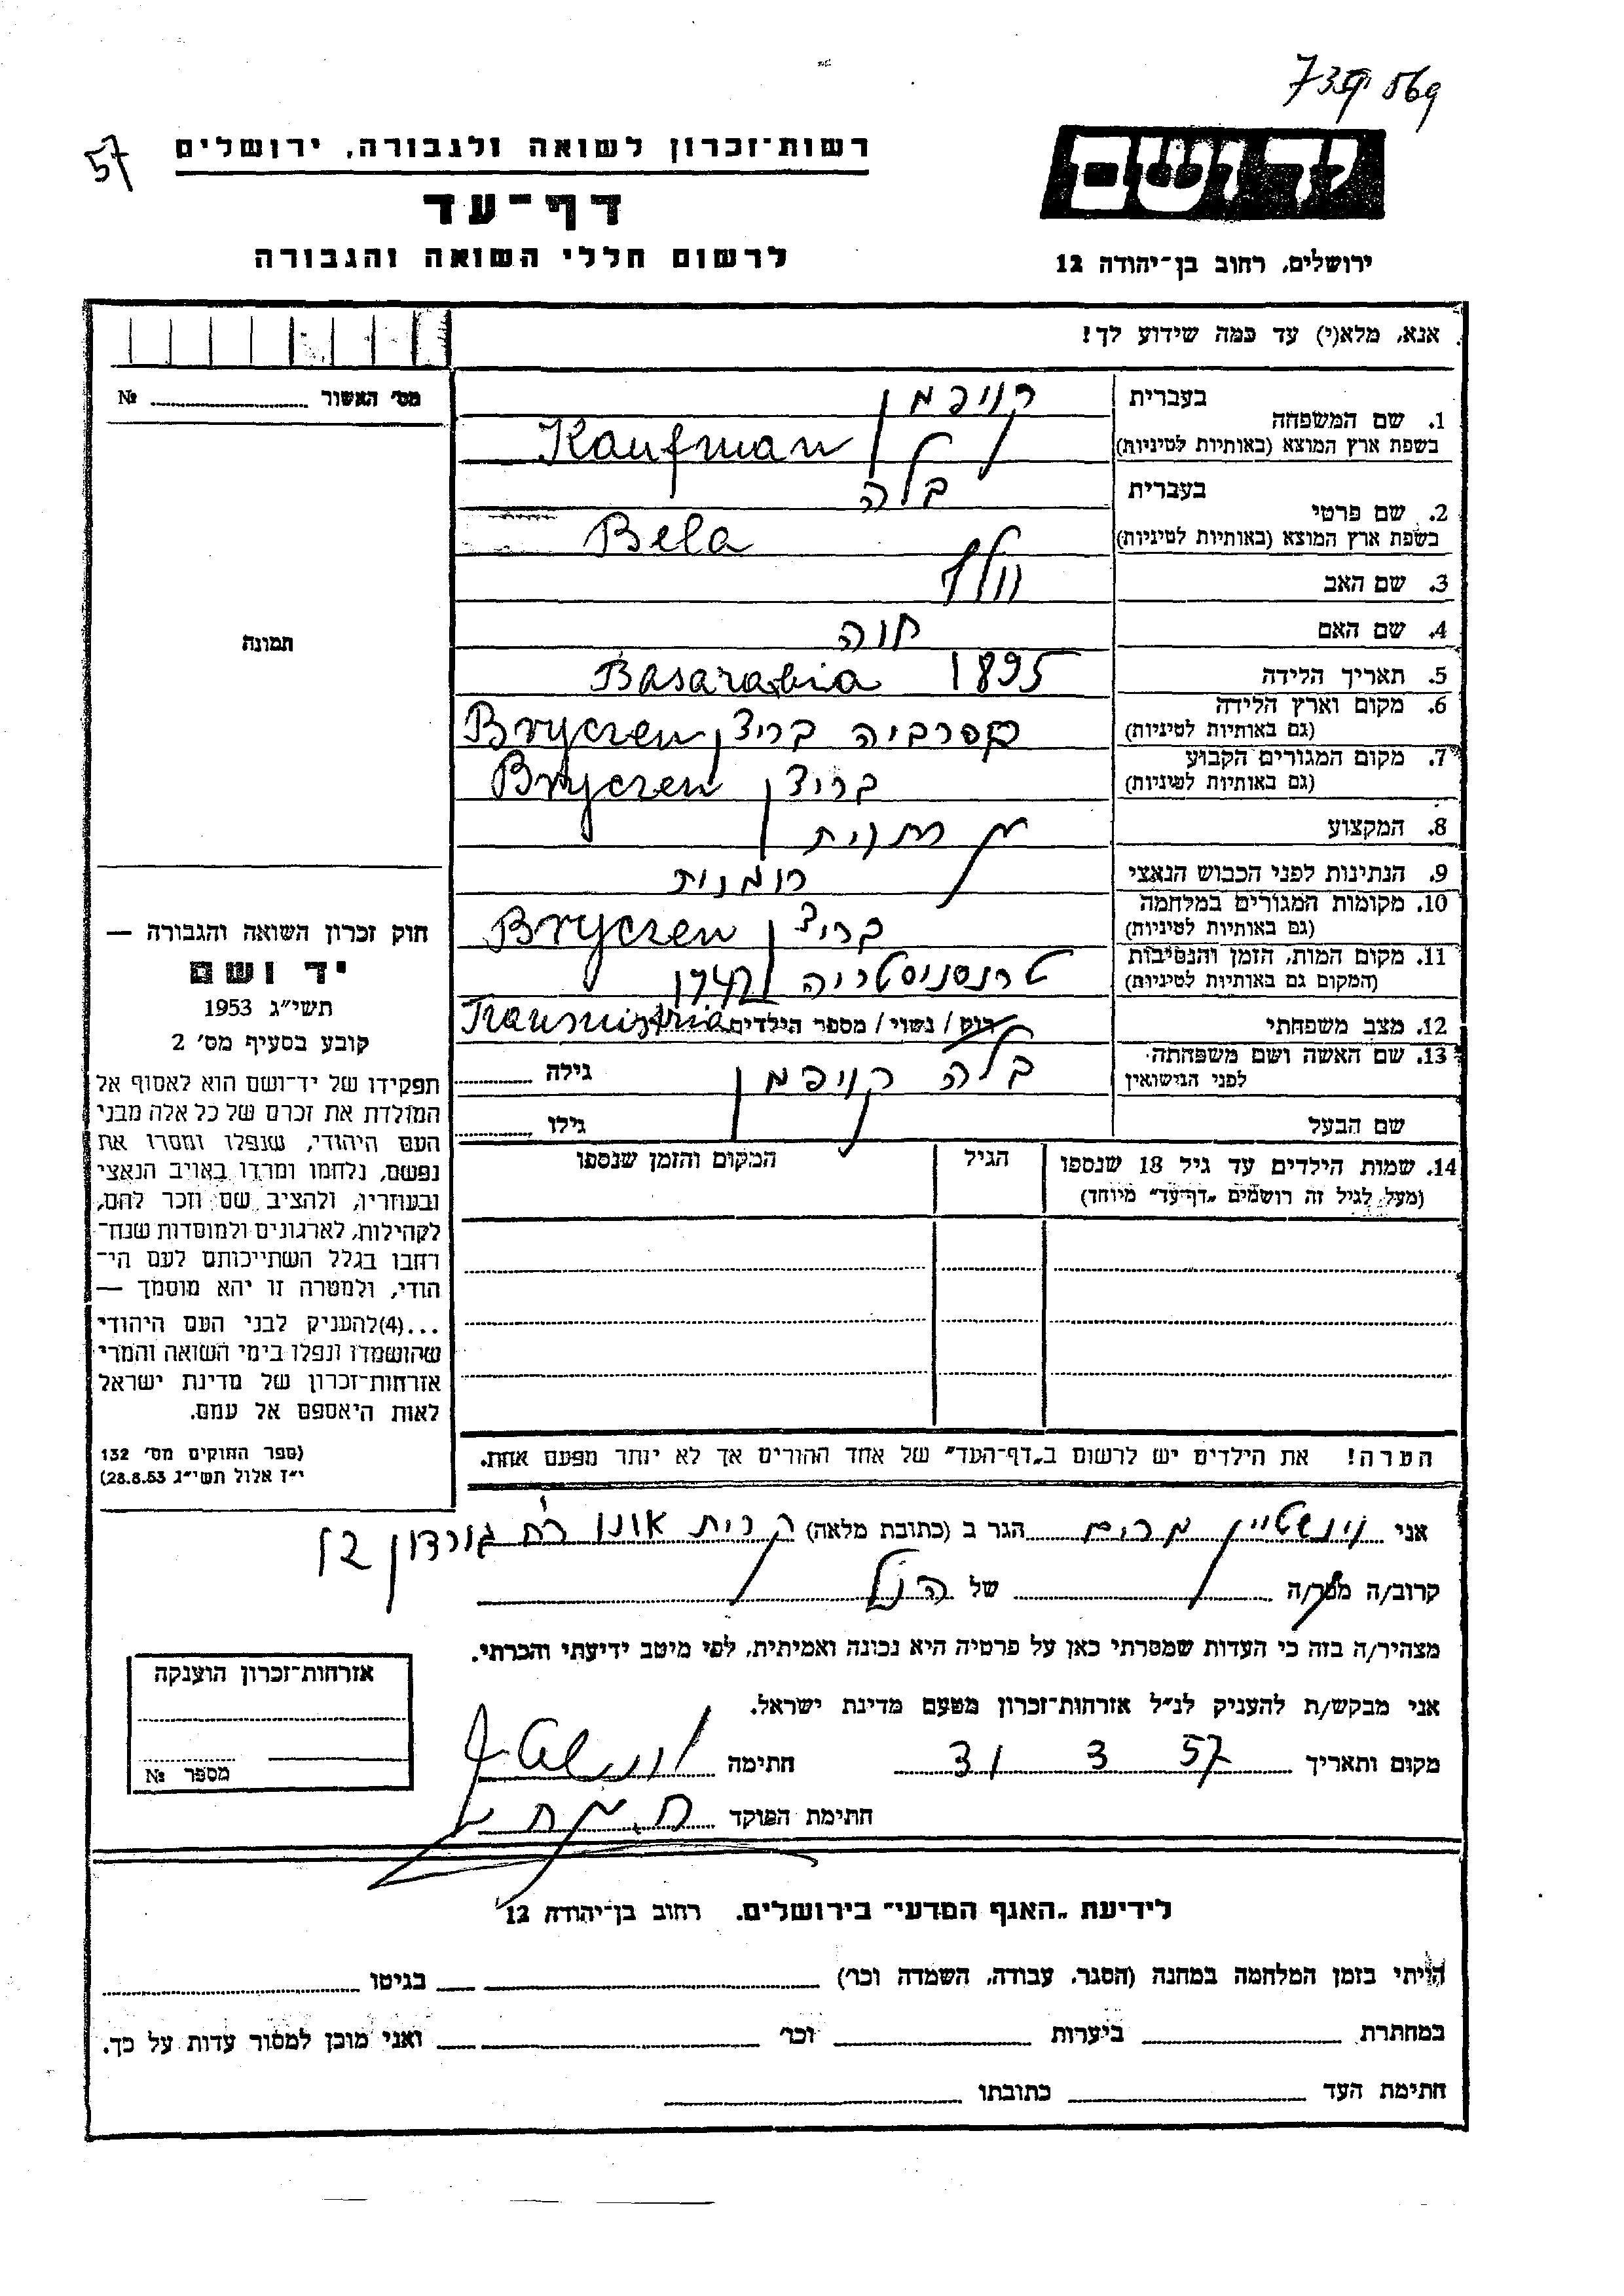 57
רשות־זכרון לשואה ולגבורה, ירושלים
דף־עד
לרשום חללי השואה והגבורה
יד ושם
ירושלים, רחוב בן־יהודה 12
אנא, מלא(י) עד כמה שידוע לך!
מס' האשור № 
1. שם המשפחה בעברית קויפמן
בשפת ארץ המוצא (באותיות לטיניות) Kaufman
2. שם פרטי בעברית בלה
בשפת ארץ המוצא (באותיות לטיניות) Bela
3. שם האב וולף
4. שם האם חוה
5. תאריך הלידה 1895 Basarabia
6. מקום וארץ הלידה
(גם באותיות לטיניות) בסרביה בריצ'ן Bryczen
7. מקום המגורים הקבוע
(גם באותיות לטיניות) בריצ'ן Bryczen
8. המקצוע
9. הנתינות לפני הכבוש הנאצי רומנית
10. מקומות המגורים במלחמה
(גם באותיות לטיניות) בריצ'ן Bryczen
11. מקום המות, הזמן והנסיבות
(המקום גם באותיות לטיניות) טרנסניסטריה
12. מצב משפחתי רוק / נשוי / מספר הילדים Transnistria
13. שם האשה ושם משפחתה
לפני הנישואין בלה קויפמן גילה
שם הבעל גילו
14. שמות הילדים עד גיל 18 שנספו
(מעל לגיל זה רושמים „דף־עד" מיוחד)
הגיל
המקום והזמן שנספו
הערה! את הילדים יש לרשום ב„דף־העד" של אחד ההורים אך לא יותר מפעם אחת.
תמונה
חוק זכרון השואה והגבורה —
יד ושם
תשי"ג 1953
קובע בסעיף מס' 2
תפקידו של יד־ושם הוא לאסוף אל
המולדת את זכרם של כל אלה מבני
העם היהודי, שנפלו ומסרו את
נפשם, נלחמו ומרדו באויב הנאצי
ובעוזריו, ולהציב שם וזכר להם,
לקהילות, לארגונים ולמוסדות שנח־
רבו בגלל השתייכותם לעם הי־
הודי, ולמטרה זו יהא מוסמך —
...(4)להעניק לבני העם היהודי
שהושמדו ונפלו בימי השואה והמרי
אזרחות־זכרון של מדינת ישראל
לאות היאספם אל עמם.
(ספר החוקים מס' 132
י"ז אלול תשי"ג 28.8.53)
אני וינשטיין מרים הגר ב (כתובת מלאה) קרית אונו רח' גורדון
קרוב/ה מכר/ה של הנ"ל
מצהיר/ה בזה כי העדות שמסרתי כאן על פרטיה היא נכונה ואמיתית, לפי מיטב ידיעתי והכרתי.
אני מבקש/ת להעניק לנ"ל אזרחות־זכרון מטעם מדינת ישראל.
מקום ותאריך 31 3 57 חתימה
חתימת הפוקד
אזרחות־זכרון הוענקה
מספר №
לידיעת „האגף המדעי" בירושלים. רחוב בן־יהודה 12
הייתי בזמן המלחמה במחנה (הסגר, עבודה, השמדה וכו') בגיטו
במחתרת ביערות וכו' ואני מוכן למסור עדות על כך.
חתימת העד כתובתו